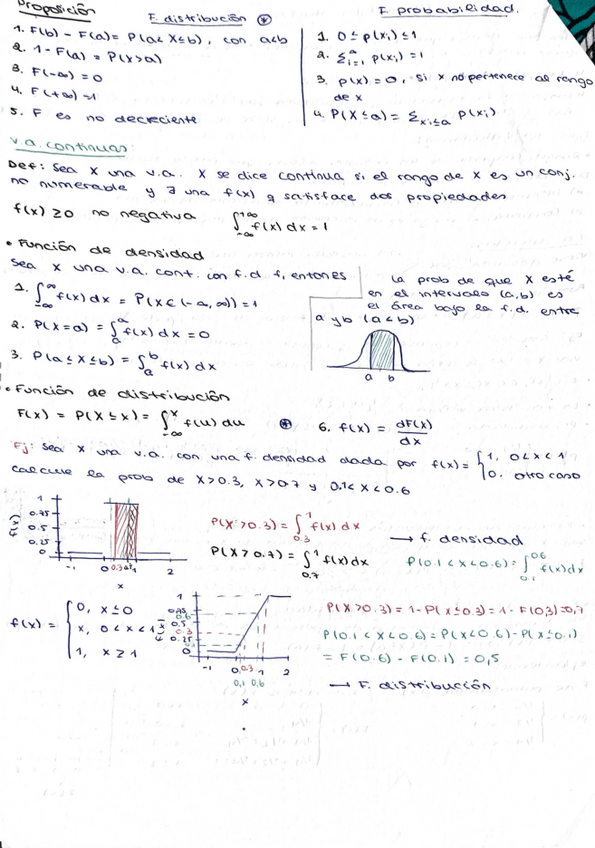 Proposición
F. distribución *
F. probabilidad.
1. F(b) - F(a) = P(a< X ≤ b), con a<b
2. 1 - F(a) = P(X>a)
3. F(-∞) = 0
4. F(+∞) = 1
5. F es no decreciente
1. 0 ≤ p(xi) ≤ 1
2. Σ i=1 p(xi) = 1
3. p(x) = 0, si x no pertenece al rango
de x
4. P(X ≤ a) = Σ xi≤a p(xi)
v.a. continuas:
Def: Sea X una v.a. X se dice continua si el rango de X es un conj.
no numerable y ∃ una f(x) q satisface dos propiedades
f(x) ≥ 0 no negativa ∫-∞+∞ f(x) dx = 1
• Función de densidad
Sea X una v.a. cont. con f.d f, entonces
1. ∫-∞∞ f(x) dx = P(X ∈ (-∞, ∞)) = 1
2. P(X=a) = ∫aa f(x) dx = 0
3. P(a ≤ X ≤ b) = ∫ab f(x) dx
La prob de que X esté
en el intervalo (a,b) es
el área bajo la f.d. entre
a y b (a<b)
a b
• Función de distribución
F(x) = P(X ≤ x) = ∫-∞x f(u) du * 6. f(x) = dF(x)/dx
Ej: Sea X una v.a. con una f. densidad dada por f(x) = { 1, 0<x<1
0. otro caso
calcule la prob de X>0.3, X>0.7 y 0.1<X<0.6
f(x)
1
0.75
0.5
0.25
0
-1 0 0.3 2
x
P(X>0.3) = ∫0.31 f(x) dx
P(X>0.7) = ∫0.71 f(x) dx
→ f. densidad
P(0.1<X<0.6) = ∫0.10.6 f(x) dx
f(x) = { 0, x ≤ 0
x, 0<x<1
1, x ≥ 1
1
0.75
0.6
0.5
0.3
0.25
0.1
0
-1 0 0.3 1 2
0,1 0,6
x
P(X>0.3) = 1-P(X≤0.3) = 1-F(0,3) = 0,7
P(0.1<X<0.6) = P(X<0.6) - P(X≤0.1)
= F(0.6) - F(0.1) = 0,5
→ F. distribución